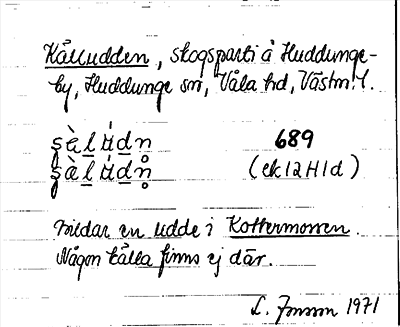 Källudden, skogsparti å Huddunge-
by, Huddunge sn, Våla hd, Västm. l.
ʂä̀lúdn̥ 689
ʂä̀lúdn̥ (ek 12H1d)
Bildar en udde i Kottermossen.
Någon källa finns ej där.
L. Jonsson 1971